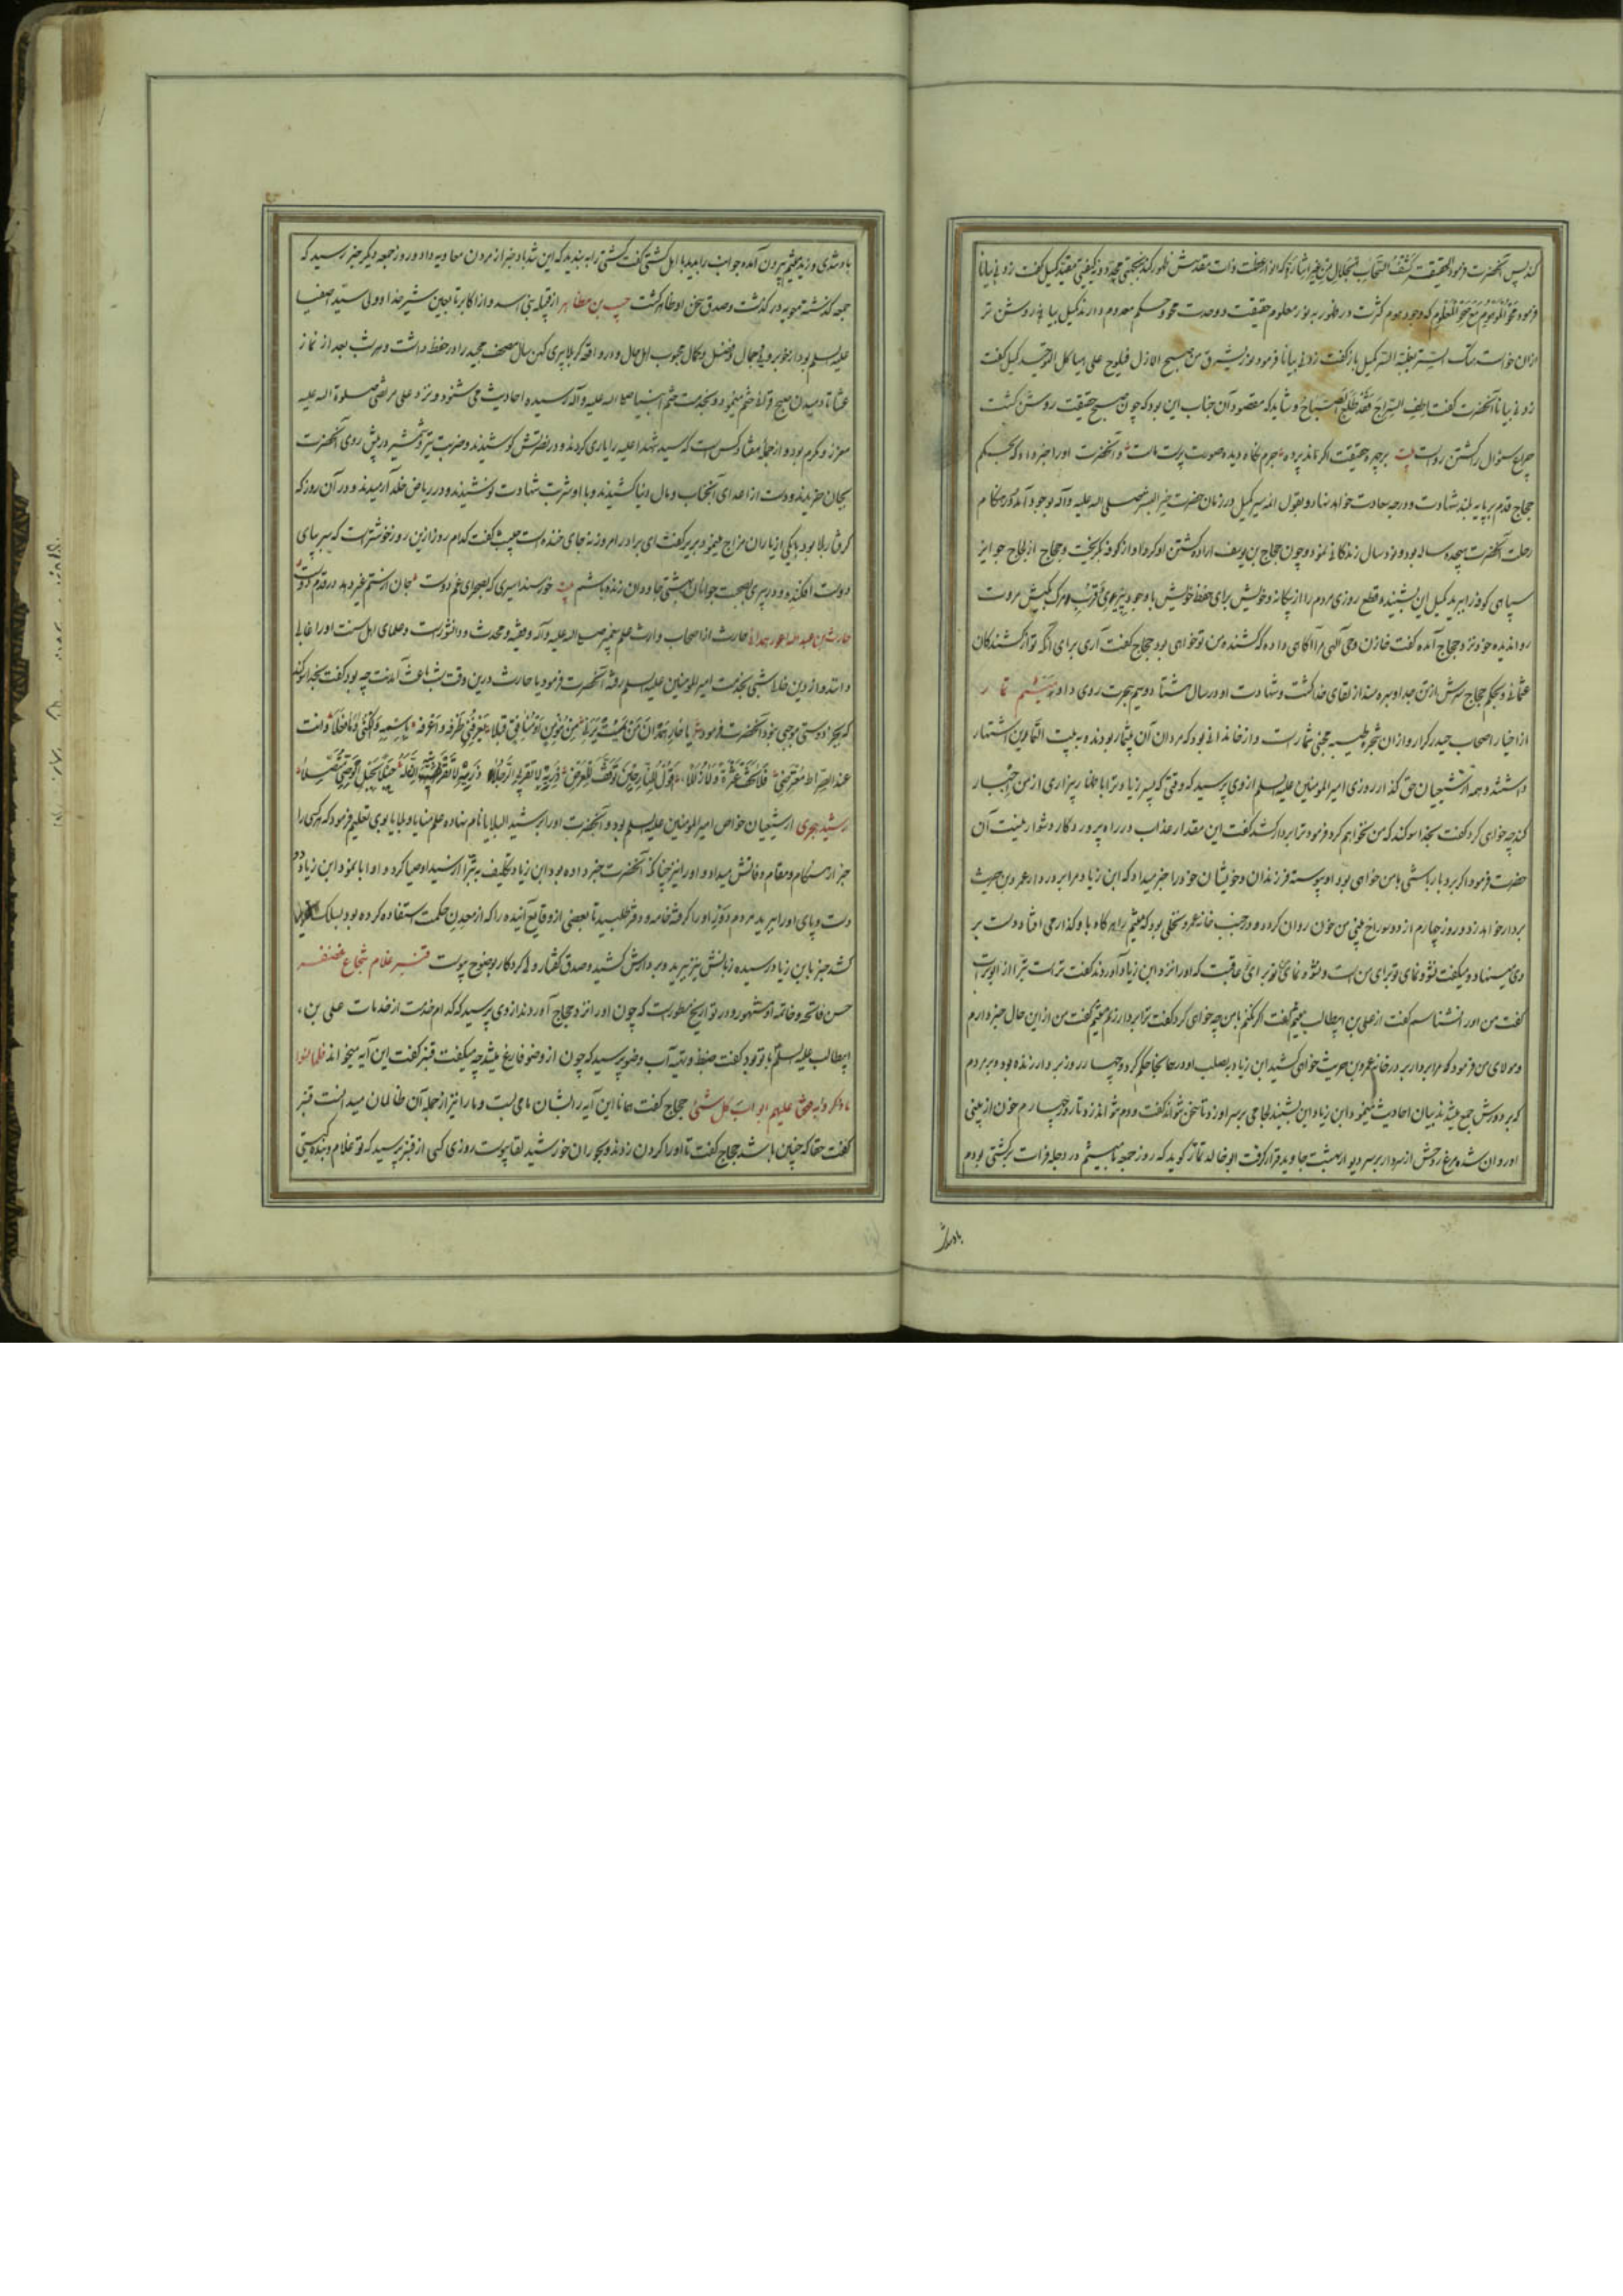 کند پس آنحضرت فرمود الحقیقة کشف سبحات الجلال من غیر اشارة که انوار عظمت ذات مقدسش ظهور کند کمیل گفت زدنی بیانا
فرمود محو الموهوم مع صحو المعلوم که وجود موهوم کثرت در ظهور نور معلوم حقیقت و وحدت محو و حکم معدوم دارد کمیل بیانی روشن تر
ازان خواست هتک الستر لغلبة السر کمیل باز گفت زدنی بیانا فرمود نور یشرق من صبح الازل فیلوح علی هیاکل التوحید کمیل گفت
زدنی بیانا آنحضرت گفت اطف السراج فقد طلع الصباح و شاید که مقصود آن جناب این بود که چون صبح حقیقت روشن گشت
چراغ سؤال را کشتن رواست بیت بر چهره حقیقت اگر ماند پرده جرم نگاه دیده صورت پرست ماست و آنحضرت اورا خبر داد که بحکم
حجاج قدم بر پایه بلند شهادت و درجه سعادت خواهد نهاد و بقول ائمه سیر کمیل در زمان حضرت خیر البشر صلی الله علیه و آله بوجود آمده و هنگام
رحلت آنحضرت هیجده ساله بود و نود سال زندگانی نمود و چون حجاج بن یوسف اراده کشتن او کرد او از کوفه بگریخت و حجاج
سپاهی کوفه را برید کمیل این بشنیده قطع روزی مردم را از بیگانه و خویش برای حفظ خویش با وجود پیری و قرب مرگ بکیش مروت
روا ندیده خود نزد حجاج آمده گفت خازن وحی الهی مرا آگاهی داده که کشنده من تو خواهی بود حجاج گفت آری برای آنکه تو از کشندگان
عثمانی و بحکم حجاج سرش از تن جدا و بهره مند از لقای خدا گشت و شهادت او در سال هشتاد و یم هجرت روی داد میثم تمار
از اخیار اصحاب حیدر کرار و ازان شجره طیبه مجتنی ثمار است و از خاندانی بود که مردان آن بیشمار بودند و به بیت التمارین اشتهار
داشتند و همه از شیعیان حق گذار روزی امیر المومنین علیه السلم ازوی پرسید که وقتی که پسر زیاد ترا به بیزاری از من اجبار
کند چه خواهی کرد گفت بخدا سوکند که من نخواهم کرد فرمود ترا بر دار کشد گفت این مقدار عذاب در راه پروردگار دشوار نیست آن
حضرت فرمود اگر بردبار باشی با من خواهی بود او پیوسته فرزندان و خویشان خود را خبر میداد که ابن زیاد مرا بر در دار عمرو بن حریث
بر دار خواهد زد و روز چهارم از دو سوراخ بینی من خون روان کردد و در جنب خانه عمرو نخلی بود که میثم را هرگاه باو گذار می افتاد دست بر
وی مینهاد و میگفت نشو و نمای تو برای من است و نشو و نمای من برای تو عاقبت که اورا نزد ابن زیاد آوردند گفت تراست تبرا از ابوتراب
گفت من اورا نشناسم گفت از علی بن ابیطالب میثم گفت اگر نکنم با من چه خواهی کرد گفت ترا بر دار زنم میثم گفت من از این حال خبر دارم
و مولای من فرمود که مرا بر دار بر در خانه عمرو بن حریث خواهی کشید ابن زیاد بصلب او در همانجا حکم کرد و چهار روز بر دار زنده بود و مردم
که بر دورش جمع میشدند بیان احادیث مینمود و ابن زیاد این بشنید لجامی بر سر او زد تا سخن نتواند گفت و دم نتواند زد تا روز چهارم خون از بینی
او روان شده مرغ روحش از سر دار بر سر دیوار بهشت جاوید قرار گرفت ابو خالد تمار گوید که روز جمعه با میثم در دجله فرات بر کشتی بودم
باد شدی
باد شدی وزید میثم بیرون آمده جوانب را بدید با اهل کشتی گفت کشتی را به بندید که این شدت باد خبر از مردن معاویه داد و روز جمعه دیگر خبر رسید که
جمعه گذشته معویه در گذشت و صدق سخن او ظاهر گشت حبیب بن مظاهر از قبیله بنی اسد و از اکابر تابعین شیر خدا و ولی سید اصفیا
علیه السلم بود از خوبرویی جمال و فضل و کمال محبوب اهل حال و در واقعه کربلا پیری کهن سال مصحف مجید را در حفظ داشت و هر شب بعد از نماز
عشا تا دمیدن صبح قرآن ختم مینمود و بخدمت ختم انبیا صلی الله علیه و آله رسیده احادیث می شنود و نزد علی مرتضی صلوة الله علیه
معزز و مکرم بود و از جمله هفتاد کس است که سید شهدا علیه را یاری کردند و در نصرتش کوشیدند و ضربت تیر و شمشیر در پیش روی آنحضرت
بجان خریدند و دست از اعدای آنجناب و مال دنیا کشیدند و با او شربت شهادت نوشیدند و در ریاض خلد آرمیدند و در آن روز که
گرفتار بلا بود با یکی از یاران مزاح مینمود بریر گفت ای برادر امروز نه جای خنده است حبیب گفت کدام روز ازین روز خوشتر است که سر بپای
دوست افکنده و در پیری بصحبت جوانان بهشتی جاودان زنده باشم بیت خورسند اسیری که بصحرای غم دوست جان از ستم غیر دهد در قدم دوست
حارث بن عبد الله اعور همدانی حارث از اصحاب وارث علم پیغمبر صلی الله علیه و آله و فقیه و محدث و دانشور است و علمای اهل سنت اورا غالی
دانند و از دین خالی شبی بخدمت امیر المومنین علیه السلم رفته آنحضرت فرمود یا حارث درین وقت شب باعث آمدنت چه بود گفت بخدا سوکند
که بجز دوستی موجبی نبود آنحضرت فرمود یا حار همدان من یمت یرنی من مومن او منافق قبلا یعرفنی طرفه و اعرفه و انت
عند الصراط معترضی فلا تخف عثرة و لا زللا اقول للنار حین توقف للعرض ذریه لا تقربی الرجلا ذریه لا تقربیه ان له حبلا بحبل الوصی متصلا
رشید هجری از شیعیان خواص امیر المومنین علیه السلم بود و آنحضرت اورا رشید البلایا نام نهاده علم منایا و بلایا بوی تعلیم فرمود که هر کسی را
خبر از هنگام و مقام وفاتش میداد و اورا نیز چنانکه آنحضرت خبر داده بود ابن زیاد تکلیف به تبرا از سید اوصیا کرد و او ابا نمود ابن زیاد دو
دست و پای اورا برید مردم دور او را گرفته خامه و دفتر طلبید تا بعضی از وقایع آینده را که از معدن حکمت استفاده کرده بود بسلک تحریر
کشد خبر باین زیاد رسیده زبانش نیز برید و بر دارش کشید و صدق گفتار ولی کردگار بوضوح پیوست قنبر غلام شجاع غضنفر
حسن فاتحه و خاتمه او مشهور و در تواریخ مسطور است که چون اورا نزد حجاج آوردند ازوی پرسید که کدام خدمت از خدمات علی بن
ابیطالب علیه السلم با تو بود گفت ضبط و تهیه آب وضو پرسید که چون از وضو فارغ میشد چه میگفت قنبر گفت این آیه میخواند فلما نسوا
ما ذکروا به فتحنا علیهم ابواب کل شئ حجاج گفت همانا این آیه را بشان ما می بست و ما را نیز از جمله آن ظالمان میدانست قنبر
گفت حقا که چنین باشد حجاج گفت تا اورا گردن زدند و بجوار ان خورشید لقا پیوست روزی کسی از قنبر پرسید که تو غلام و بنده کیستی